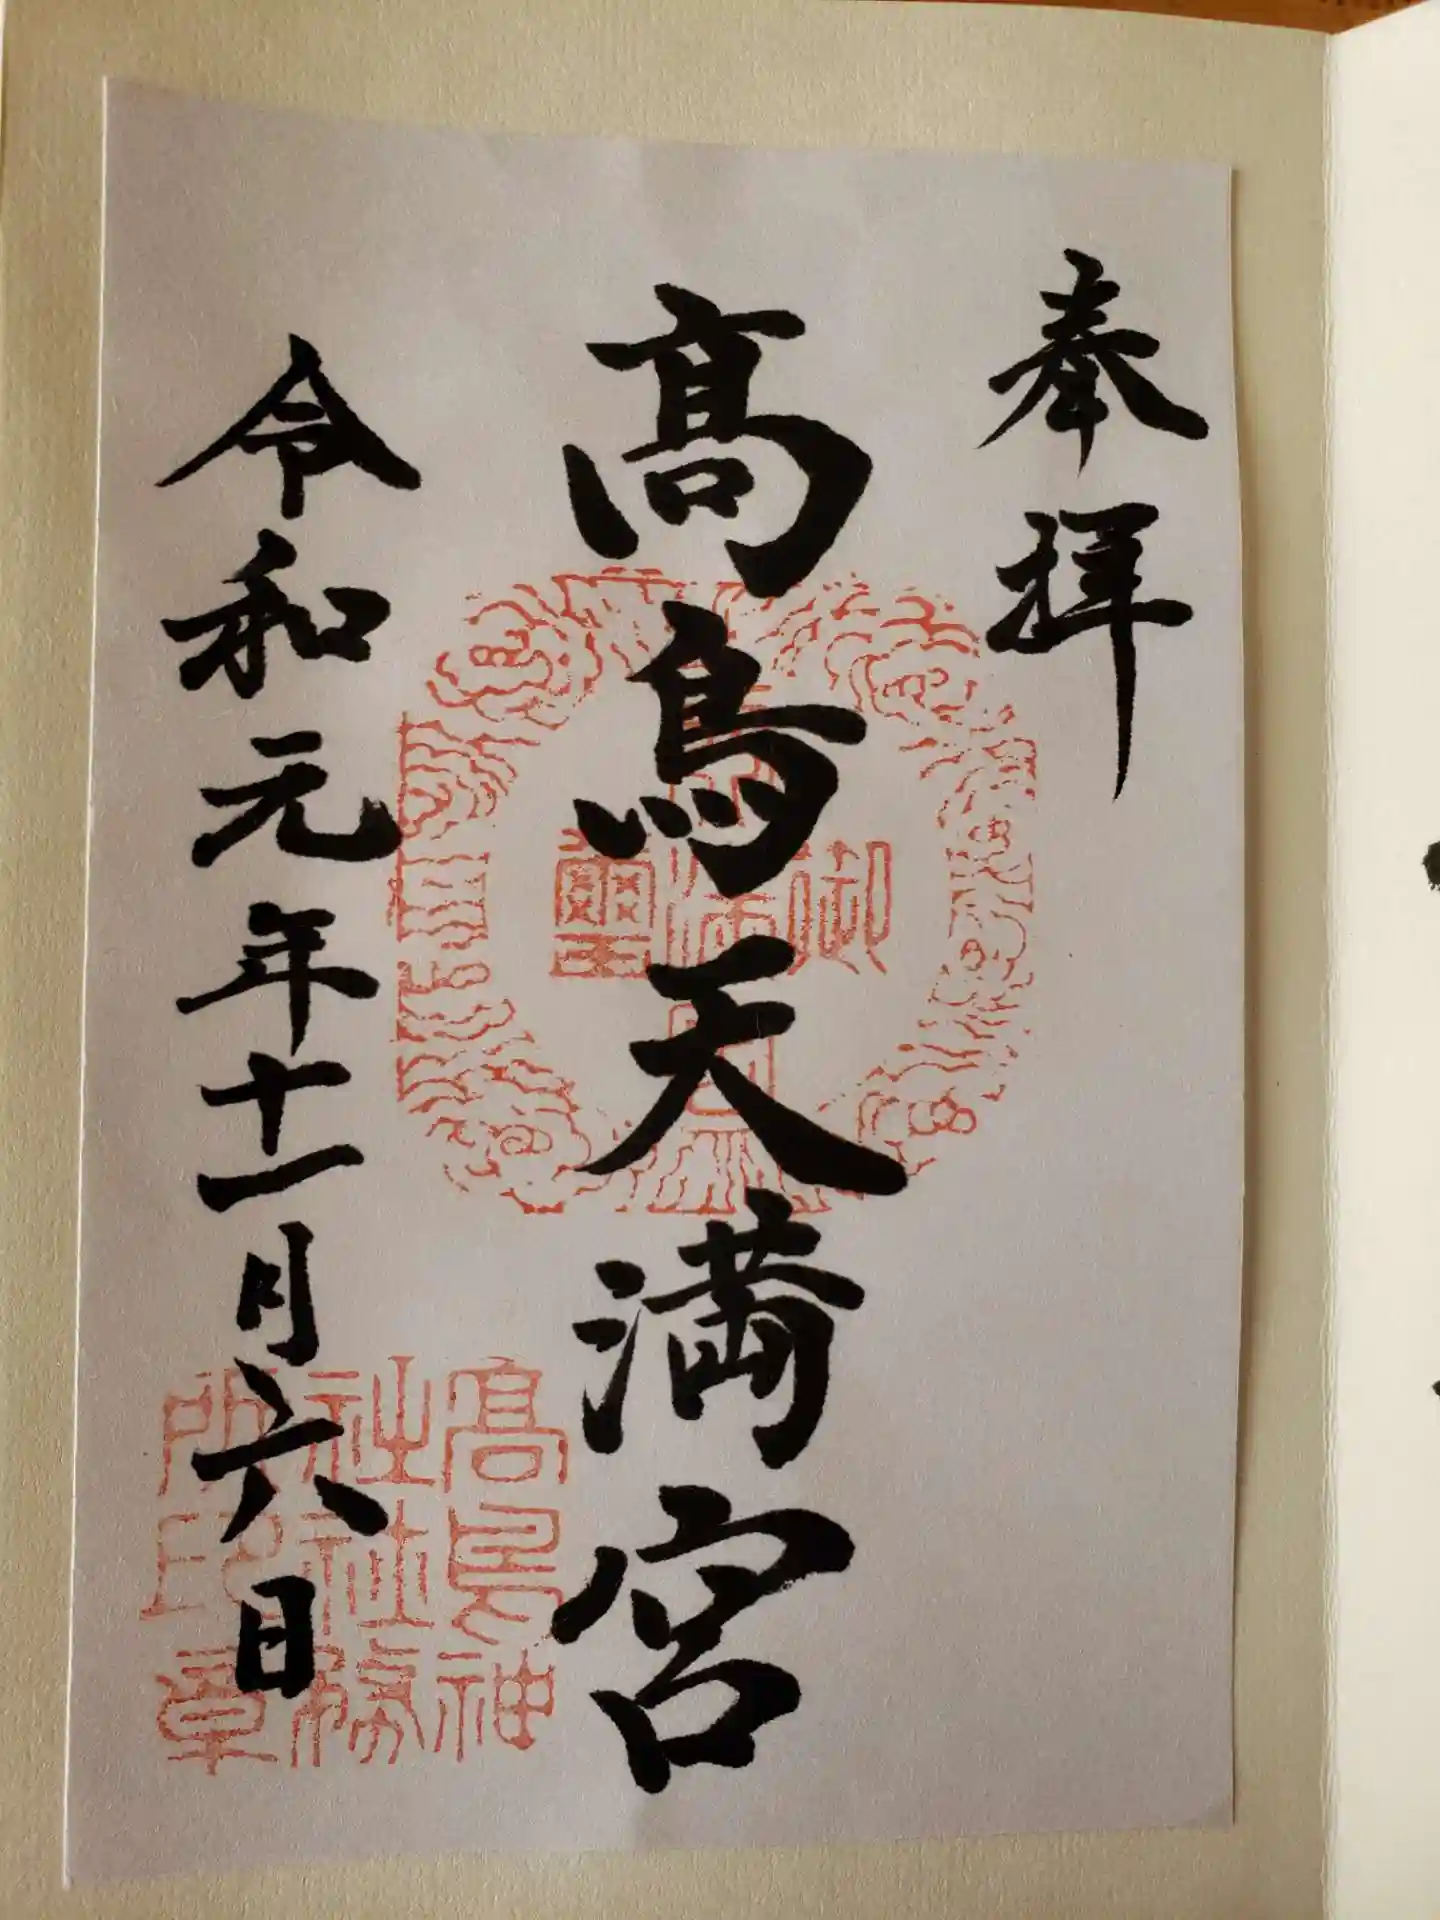 奉拝
髙鳥天満宮
令和元年十一月六日
髙鳥神
社社務
所印章